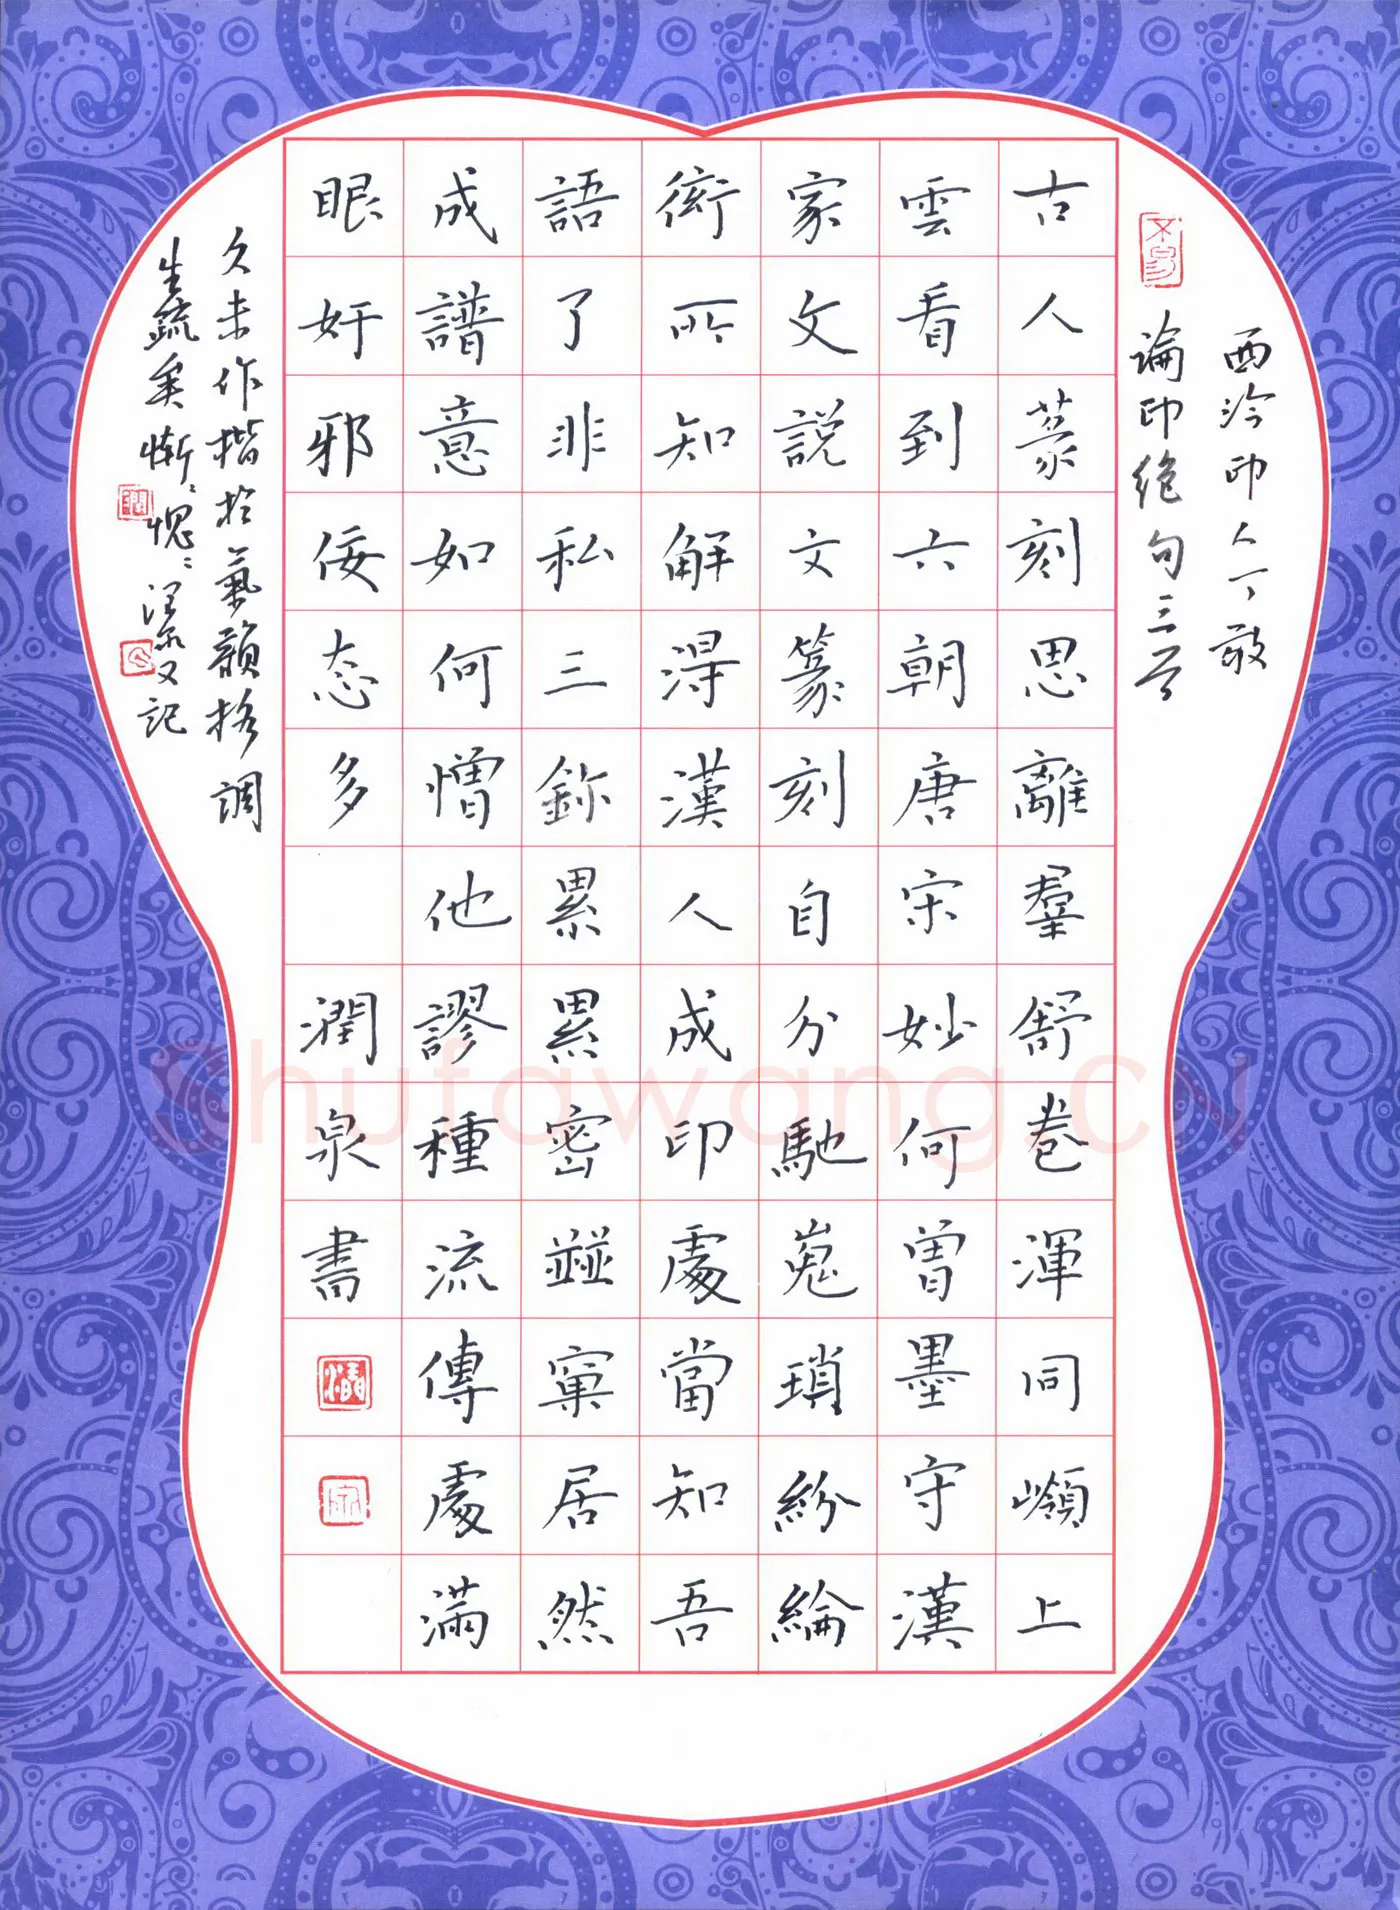 西泠印人丁敬
論印絕句三首
古人篆刻思離羣舒卷渾同嶺上
雲看到六朝唐宋妙何曾墨守漢
家文說文篆刻自分馳嵬瑣紛綸
衒所知解得漢人成印處當知吾
語了非私三鉨累累密竝窠居然
成譜意如何憎他謬種流傳處滿
眼奸邪佞态多
潤泉書
久未作楷於氣韻格調
生疏矣慚々愧々潤泉又記
Shufawang.CN